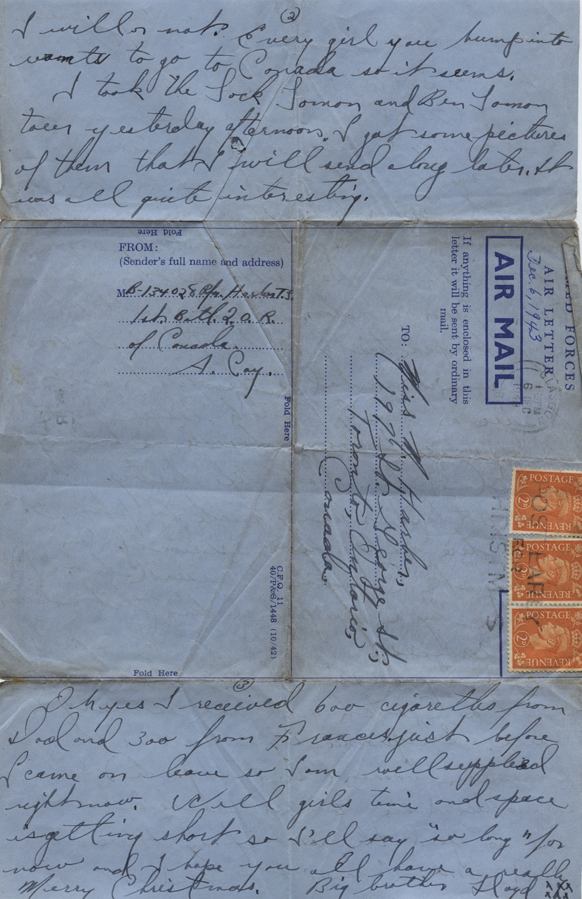 (2)
I will or not. Every girl you bump into
wants to go to Canada so it seems.
I took the Lock Lomon and Ben Lomon
tour yesterday afternoon. I got some pictures
of them that I will send along later. It
was all quite interesting.
Fold Here
FROM:
(Sender's full name and address)
1st. Batt. Q.O.R.
of Canada.
A. Coy.
Fold Here
C.F.O. 11
Fold Here
ARMED FORCES
AIR LETTER
Dec. 6, 1943
AIR MAIL
If anything is enclosed in this
letter it will be sent by ordinary
mail.
TO:
Miss N. Harber,
St. George St.,
Toronto, Ontario,
Canada.
POSTAGE
REVENUE
POSTAGE
REVENUE
POSTAGE
REVENUE
POST EARLY
(3)
Oh yes I received 600 cigarettes from
Dad and 300 from Frances just before
I came on leave so I am well supplied
right now. Well girls time and space
is getting short so I'll say "so long" for
now and I hope you all have a really
Merry Christmas. Big brother Lloyd
xxx
xxx